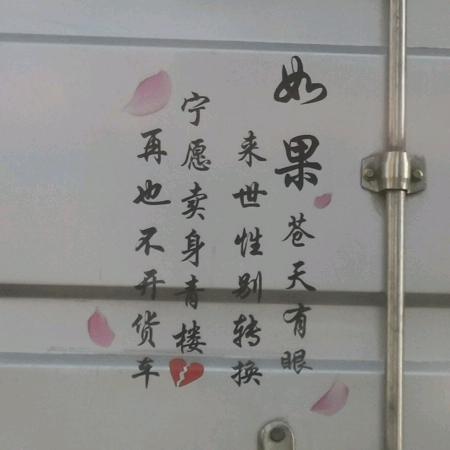 如果苍天有眼
来世性别转换
宁愿卖身青楼
再也不开货车